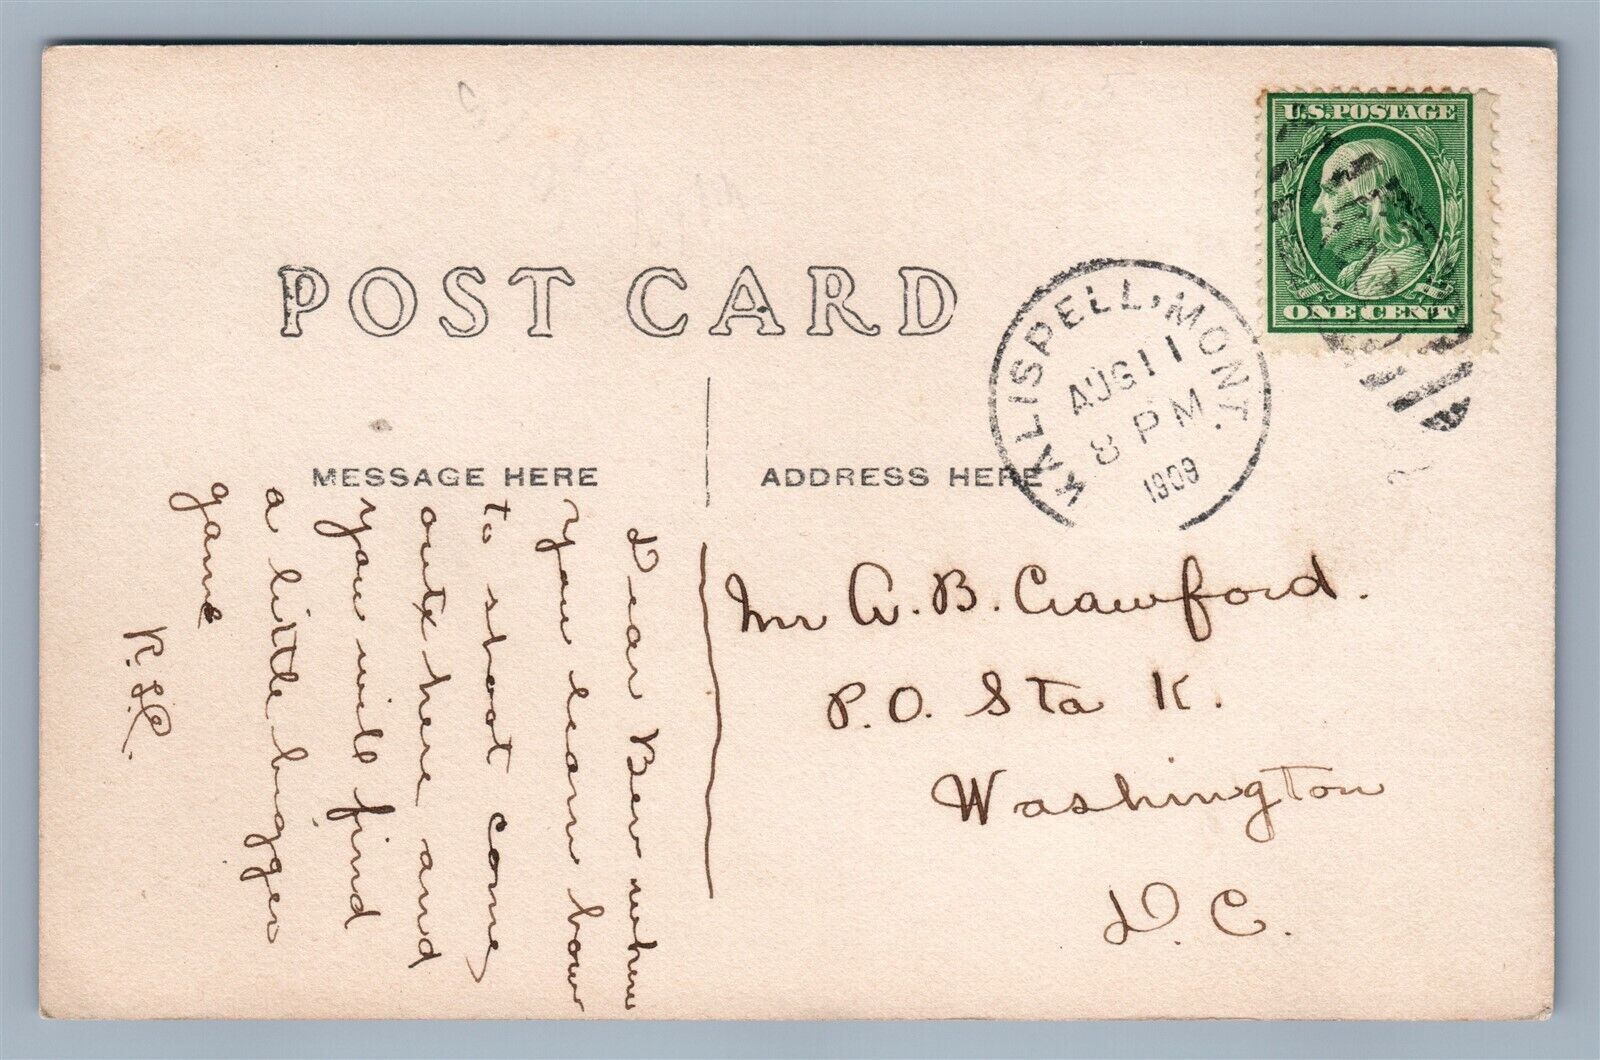 U.S. POSTAGE
ONE CENT
POST CARD
KALISPELL, MONT.
AUG 11
8 PM
1909
MESSAGE HERE
ADDRESS HERE
Dear Bew when
you learn how
to shoot come
out here and
you will find
a little bigger
game
R.L.C.
Mr A. B. Crawford.
P.O. Sta K.
Washington
D.C.